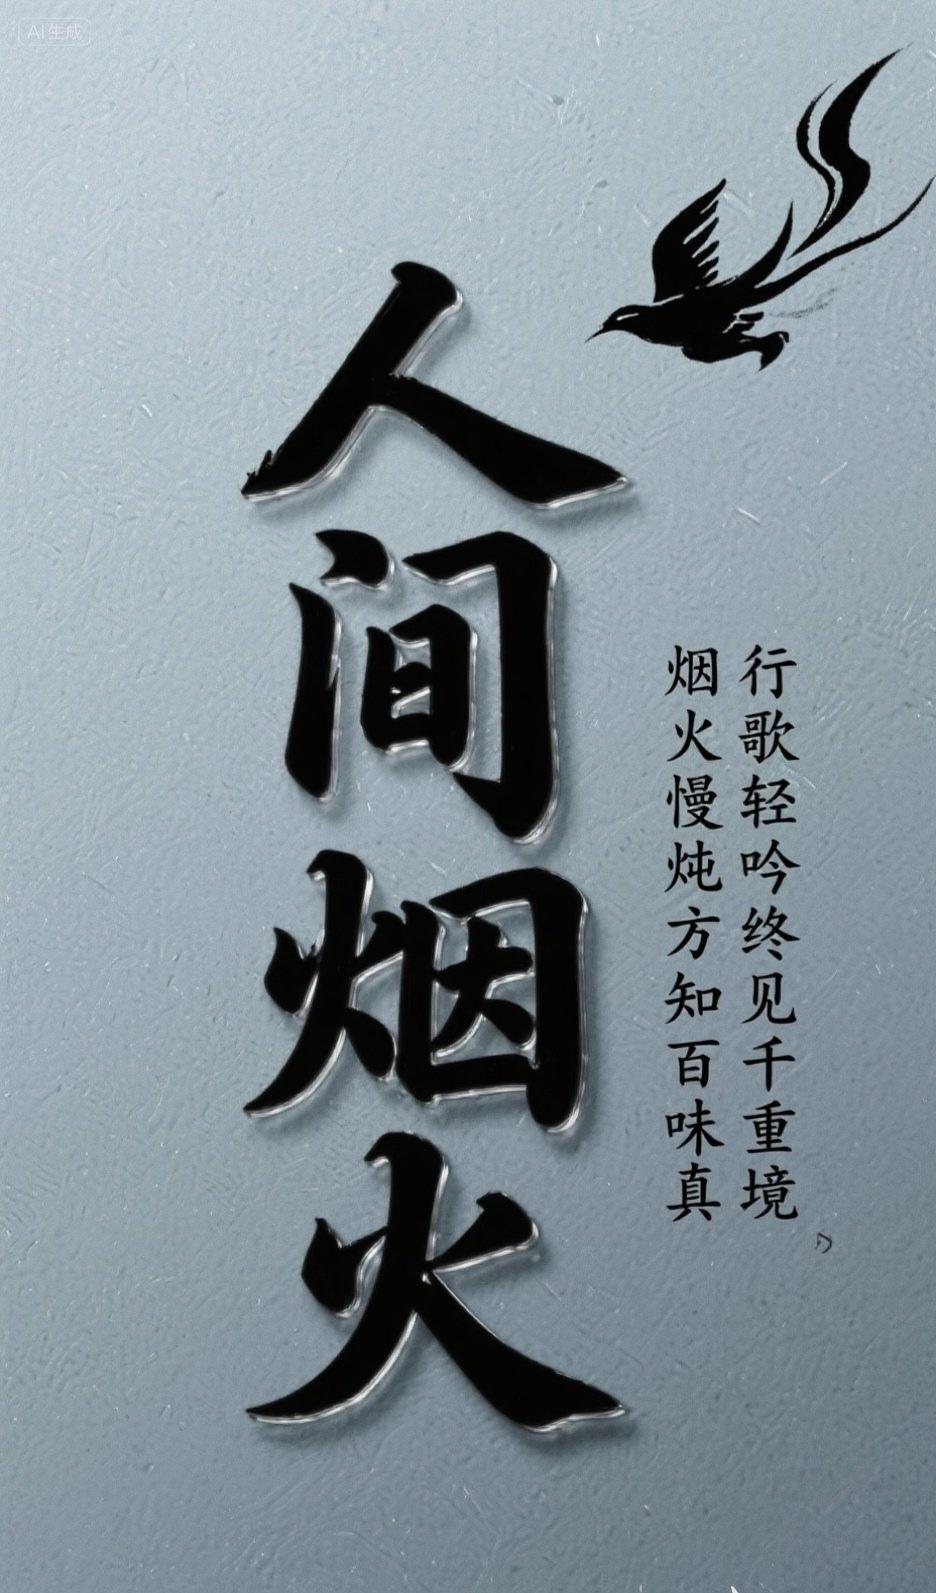 AI生成
人间烟火
行歌轻吟终见千重境
烟火慢炖方知百味真